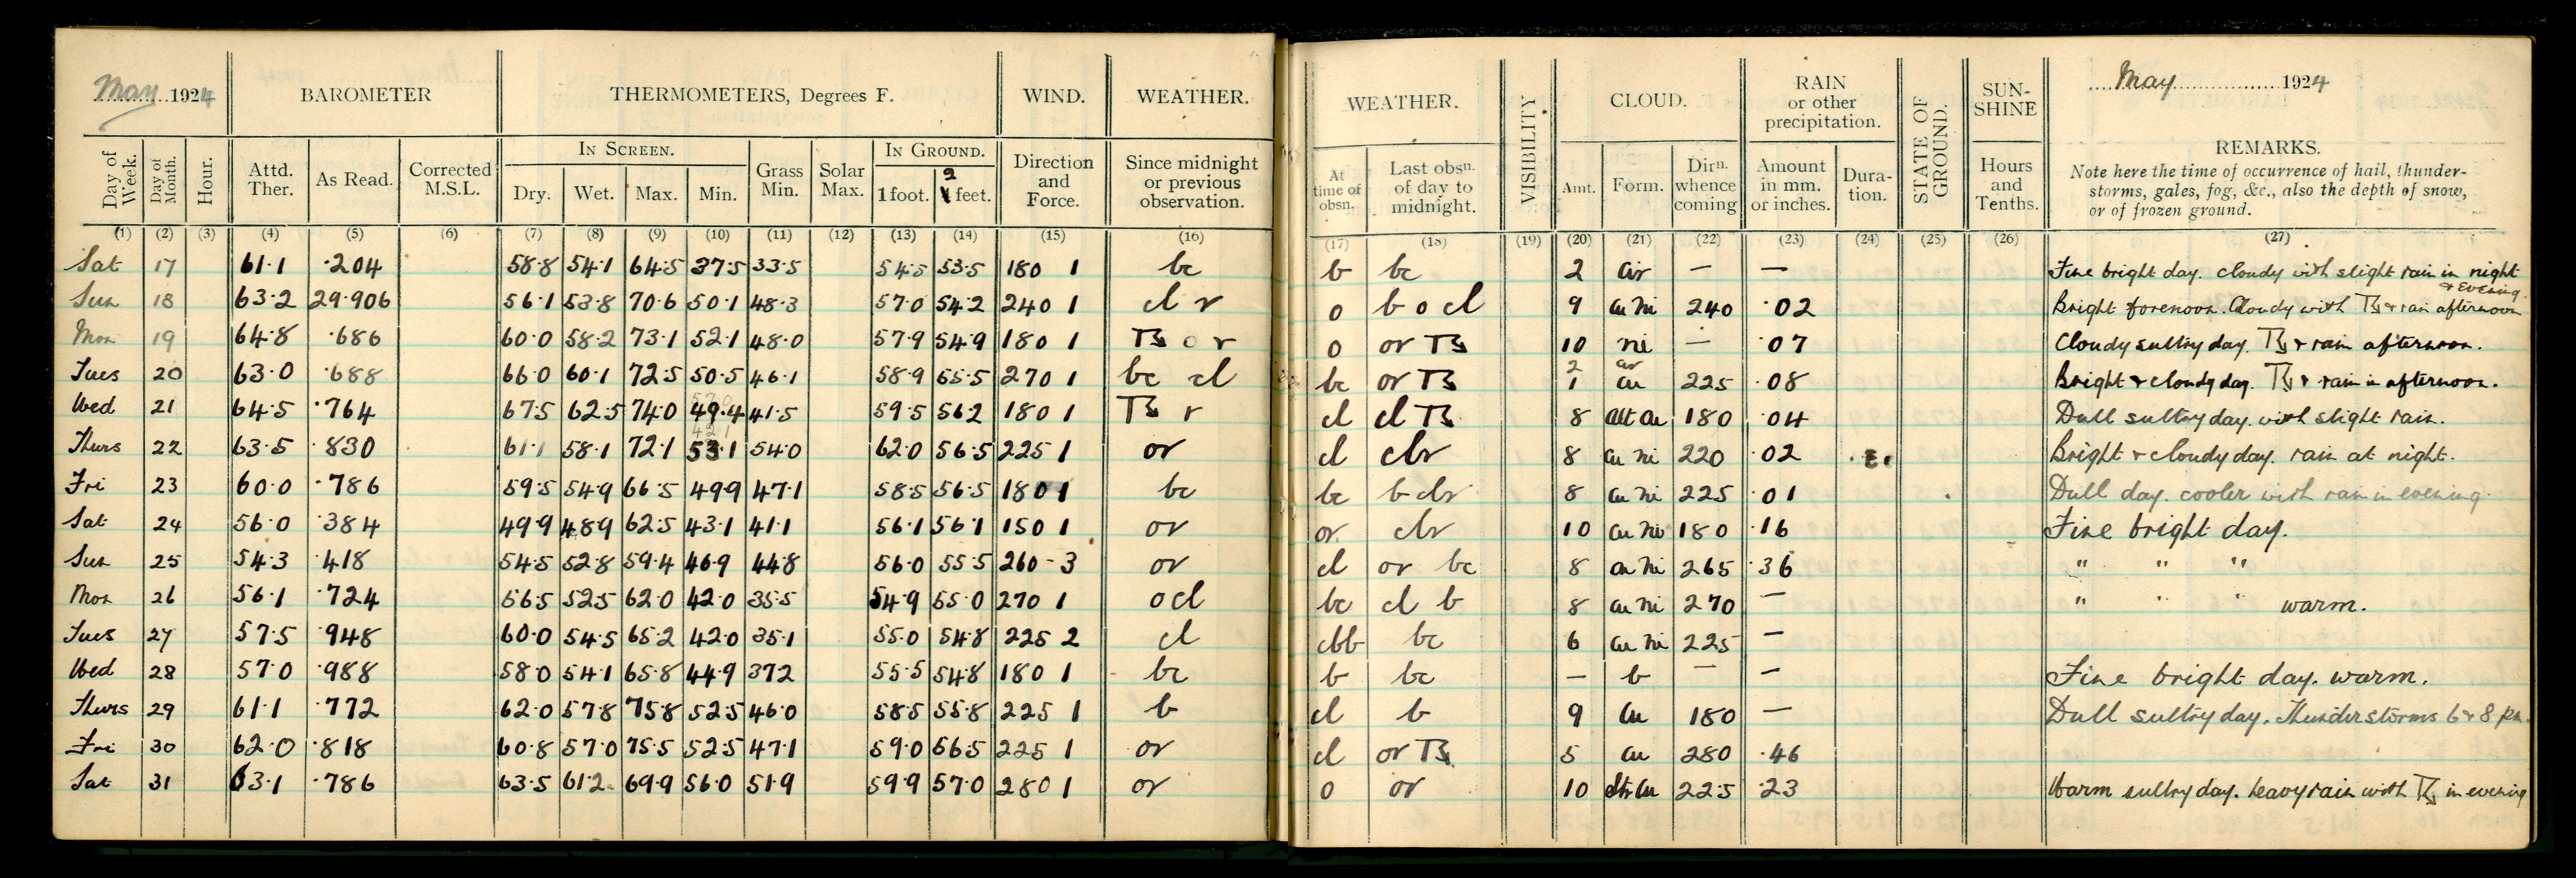 May 1924 BAROMETER THERMOMETERS, Degrees F. WIND. WEATHER.
Day of Week. Day of Month. Hour. Attd. Ther. As Read. Corrected M.S.L. IN SCREEN. Dry. Wet. Max. Min. Grass Min. Solar Max. IN GROUND. 1 foot. 2 feet. Direction and Force. Since midnight or previous observation.
(1) (2) (3) (4) (5) (6) (7) (8) (9) (10) (11) (12) (13) (14) (15) (16)
Sat 17 61.1 .204 58.8 54.1 64.5 37.5 33.5 54.5 53.5 180 1 bc
Sun 18 63.2 29.906 56.1 53.8 70.6 50.1 48.3 57.0 54.2 240 1 cl r
Mon 19 64.8 .686 60.0 58.2 73.1 52.1 48.0 57.9 54.9 180 1 T↯ o r
Tues 20 63.0 .688 66.0 60.1 72.5 50.5 46.1 58.9 55.5 270 1 bc cl
Wed 21 64.5 .764 67.5 62.5 74.0 49.4 41.5 59.5 56.2 180 1 T↯ r
Thurs 22 63.5 .830 61.1 58.1 72.1 53.1 54.0 62.0 56.5 225 1 or
Fri 23 60.0 .786 59.5 54.9 66.5 49.9 47.1 58.5 56.5 180 1 bc
Sat 24 56.0 .384 49.9 48.9 62.5 43.1 41.1 56.1 56.1 150 1 or
Sun 25 54.3 .418 54.5 52.8 59.4 46.9 44.8 56.0 55.5 260 - 3 or
Mon 26 56.1 .724 56.5 52.5 62.0 42.0 35.5 54.9 55.0 270 1 o cl
Tues 27 57.5 .948 60.0 54.5 65.2 42.0 35.1 55.0 54.8 225 2 cl
Wed 28 57.0 .988 58.0 54.1 65.8 44.9 37.2 55.5 54.8 180 1 bc
Thurs 29 61.1 .772 62.0 57.8 75.8 52.5 46.0 58.5 55.8 225 1 b
Fri 30 62.0 .818 60.8 57.0 75.5 52.5 47.1 59.0 56.5 225 1 or
Sat 31 63.1 .786 63.5 61.2 69.9 56.0 51.9 59.9 57.0 280 1 or
WEATHER. VISIBILITY CLOUD. RAIN or other precipitation. STATE OF GROUND. SUN-SHINE May 1924
At time of obsn. Last obsn. of day to midnight. Amt. Form. Dirn. whence coming Amount in mm. or inches. Dura-tion. Hours and Tenths. REMARKS.
Note here the time of occurrence of hail, thunder-
storms, gales, fog, &c., also the depth of snow,
or of frozen ground.
(17) (18) (19) (20) (21) (22) (23) (24) (25) (26) (27)
b bc 2 cir — — Fine bright day. cloudy with slight rain in night
& evening.
o b o cl 9 cu ni 240 .02 Bright forenoon. Cloudy with T↯ & rain afternoon
o or T↯ 10 ni — .07 Cloudy sultry day. T↯ & rain afternoon.
2 cir
bc or T↯ 1 cu 225 .08 Bright & cloudy day. T↯ & rain in afternoon.
cl cl T↯ 8 alt cu 180 .04 Dull sultry day. with slight rain.
cl clr 8 cu ni 220 .02 Bright & cloudy day. rain at night.
bc b clr 8 cu ni 225 .01 Dull day. cooler with rain in evening.
or clr 10 cu ni 180 .16 Fine bright day.
cl or bc 8 cu ni 265 .36 " " "
bc cl b 8 cu ni 270 — " " " warm.
clb bc 6 cu ni 225 —
b bc — b — — Fine bright day. warm.
cl b 9 cu 180 — Dull sultry day. Thunderstorms 6 & 8 pm.
cl or T↯ 5 cu 280 .46
o or 10 str cu 225 .23 Warm sultry day. heavy rain with T↯ in evening